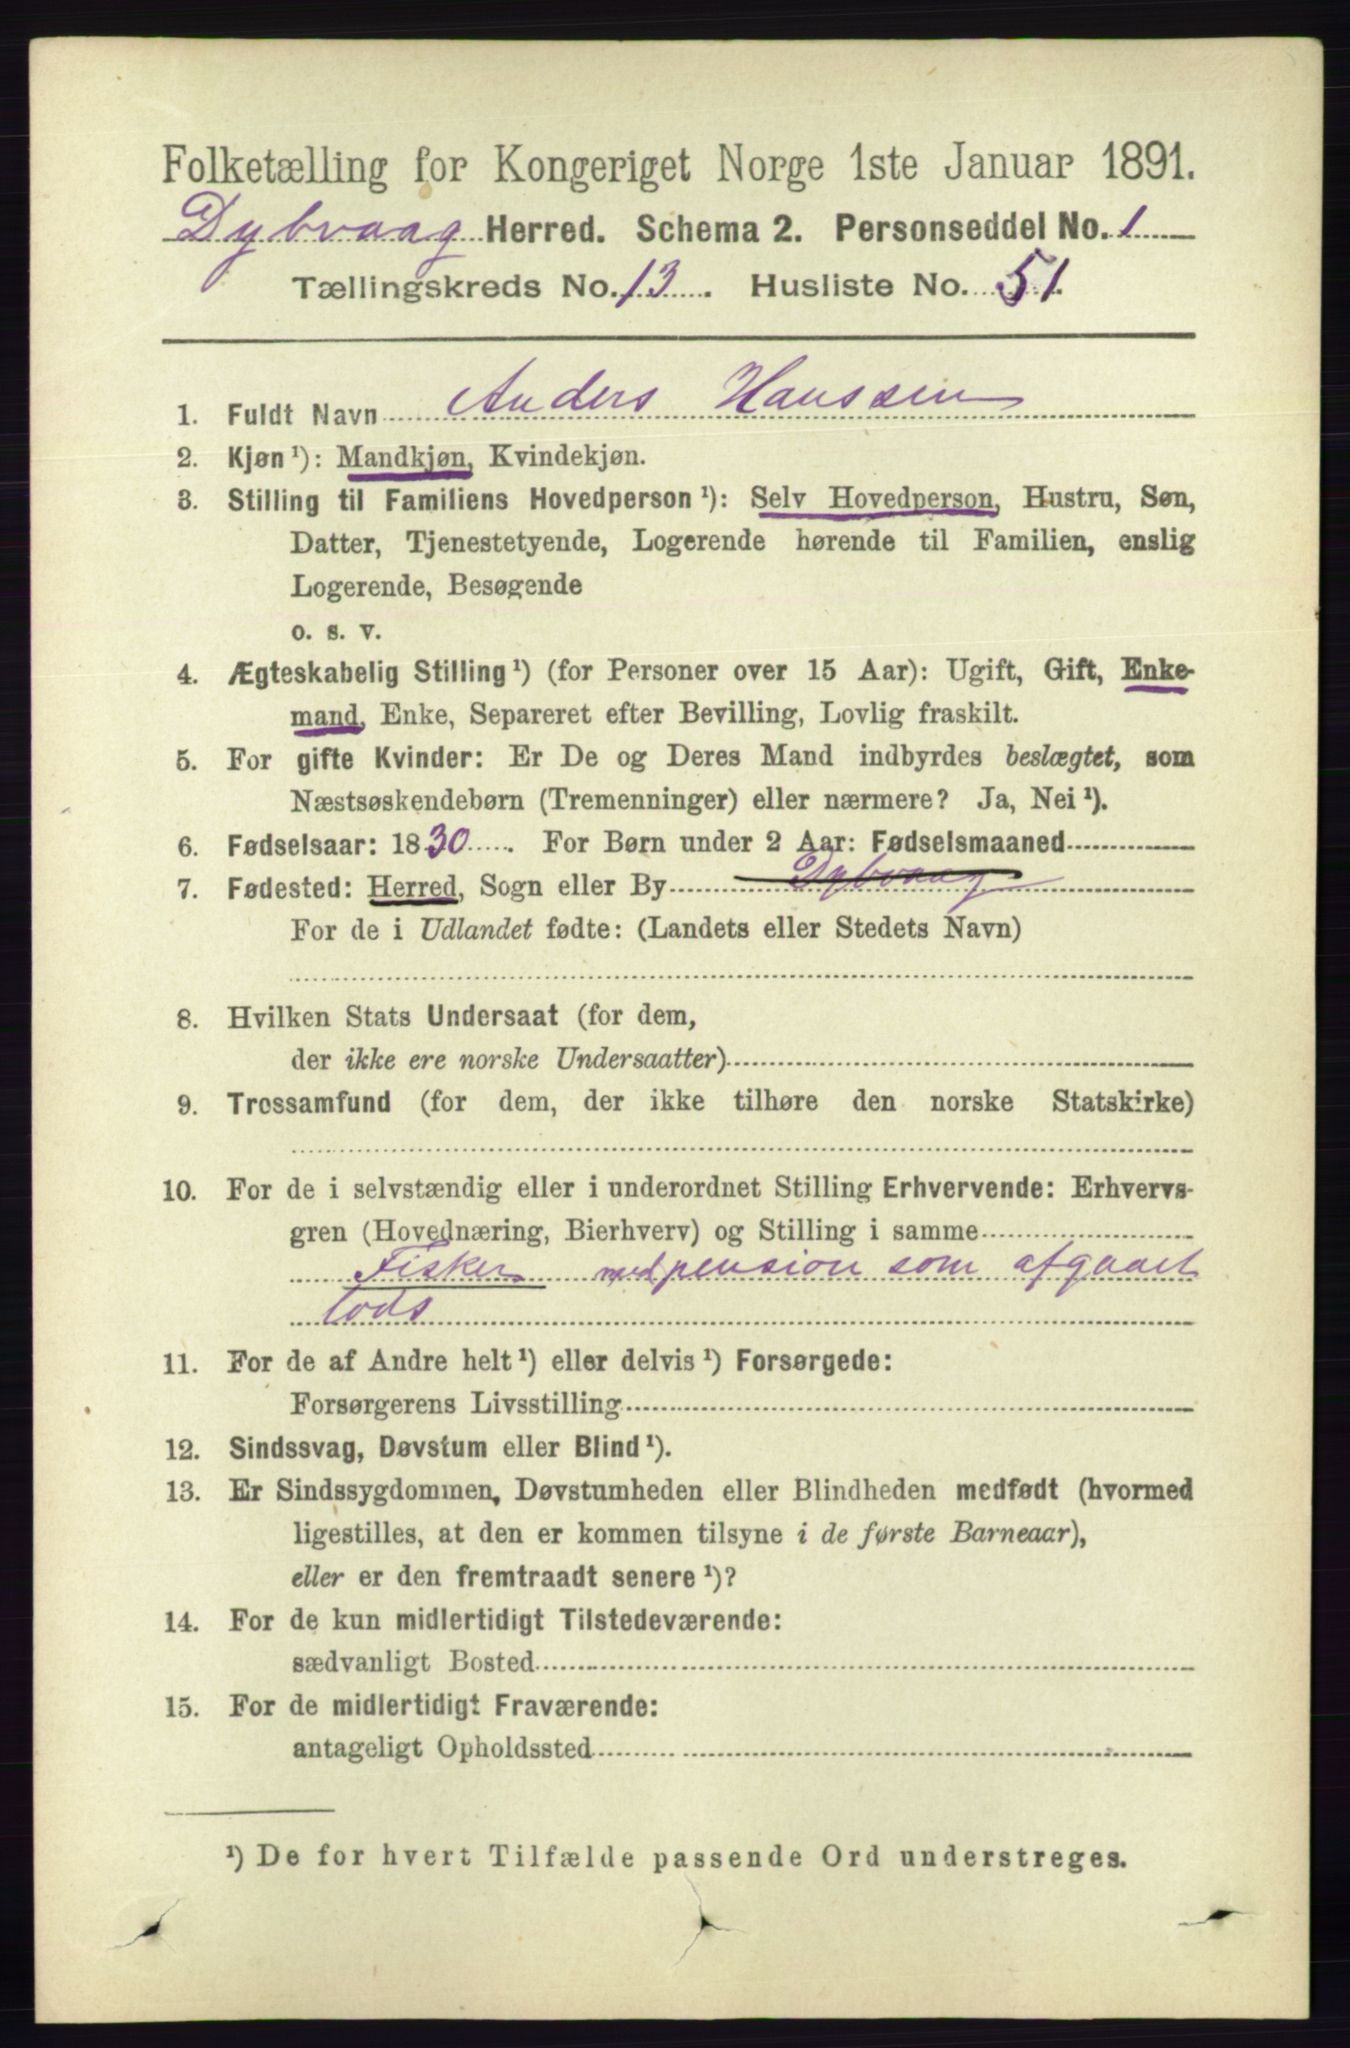 Folketælling for Kongeriget Norge 1ste Januar 1891.
Dybvaag Herred. Schema 2. Personseddel No. 1
Tællingskreds No. 13. Husliste No. 51.
1. Fuldt Navn Anders Hanssen
2. Kjøn ¹): Mandkjøn, Kvindekjøn.
3. Stilling til Familiens Hovedperson ¹): Selv Hovedperson, Hustru, Søn,
Datter, Tjenestetyende, Logerende hørende til Familien, enslig
Logerende, Besøgende
o. s. v.
4. Ægteskabelig Stilling ¹) (for Personer over 15 Aar): Ugift, Gift, Enke-
mand, Enke, Separeret efter Bevilling, Lovlig fraskilt.
5. For gifte Kvinder: Er De og Deres Mand indbyrdes beslægtet, som
Næstsøskendebørn (Tremenninger) eller nærmere? Ja, Nei ¹).
6. Fødselsaar: 1830. For Børn under 2 Aar: Fødselsmaaned
7. Fødested: Herred, Sogn eller By Dybvaag
For de i Udlandet fødte: (Landets eller Stedets Navn)
8. Hvilken Stats Undersaat (for dem,
der ikke ere norske Undersaatter)
9. Trossamfund (for dem, der ikke tilhøre den norske Statskirke)
10. For de i selvstændig eller i underordnet Stilling Erhvervende: Erhvervs-
gren (Hovednæring, Bierhverv) og Stilling i samme
Fisker med pension som afgaaet
lods
11. For de af Andre helt ¹) eller delvis ¹) Forsørgede:
Forsørgerens Livsstilling
12. Sindssvag, Døvstum eller Blind ¹).
13. Er Sindssygdommen, Døvstumheden eller Blindheden medfødt (hvormed
ligestilles, at den er kommen tilsyne i de første Barneaar),
eller er den fremtraadt senere ¹)?
14. For de kun midlertidigt Tilstedeværende:
sædvanligt Bosted
15. For de midlertidigt Fraværende:
antageligt Opholdssted
¹) De for hvert Tilfælde passende Ord understreges.